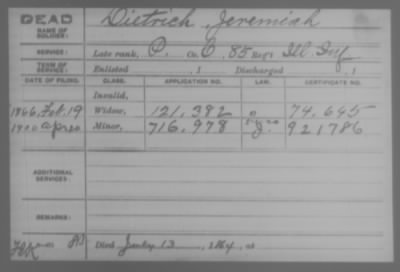 DEAD
NAME OF SOLDIER: Dietrich, Jeremiah
SERVICE: Late rank, P. Co. C, 85 Reg't Ill. Inf.
TERM OF SERVICE: Enlisted , 1 Discharged , 1
DATE OF FILING. CLASS. APPLICATION NO. LAW. CERTIFICATE NO.
Invalid,
1866, Feb. 19 Widow, 121,382 74,645
1900 Apr 20 Minor, 716,978 921786
ADDITIONAL SERVICES:
REMARKS:
Died July 13, 1864, at